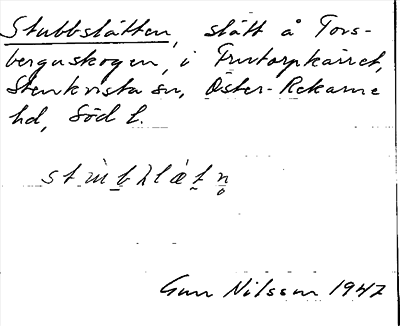 Stubbslåtten, slått å Tors-
bergaskogen, i Frutorpkärret,
Stenkvista sn, Öster-Rekarne
hd, Söd l.
Gun Nilsson 1947